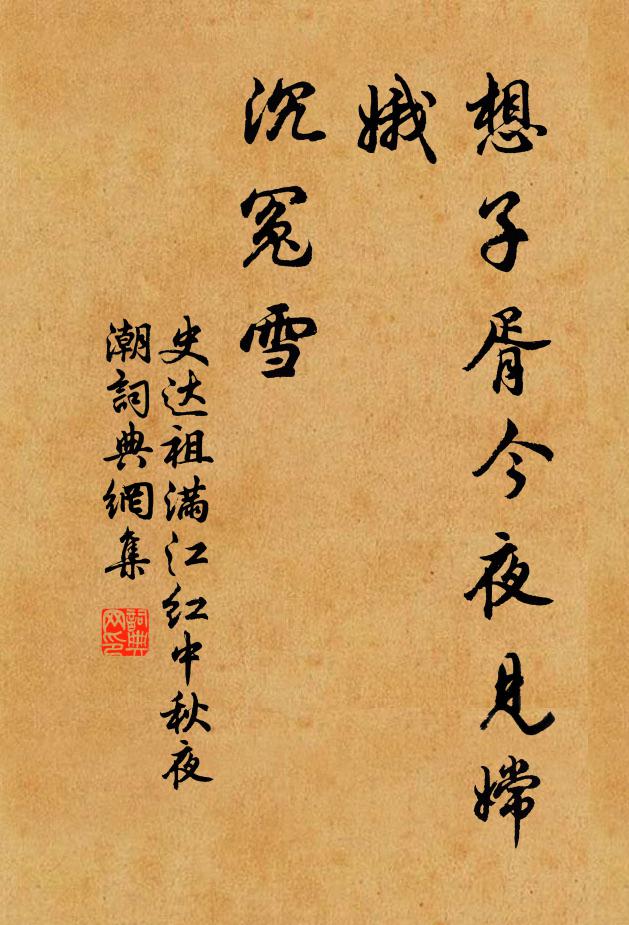 想子胥今夜見嫦
娥
沉冤雪
史达祖满江红中秋夜
潮詞典網集
詞典
网印